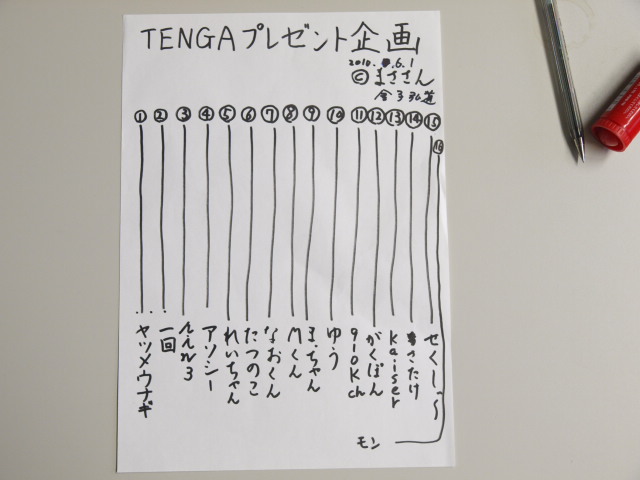 TENGAプレゼント企画
2010.6.1
©まささん
金子弘道
① ② ③ ④ ⑤ ⑥ ⑦ ⑧ ⑨ ⑩ ⑪ ⑫ ⑬ ⑭ ⑮
⑯
ヤツメウナギ
一回
アソシー
れいちゃん
たつのこ
なおくん
Mくん
まぁちゃん
ゆう
910Kch
がくぽん
Kaiser
まさたけ
せくしぃ〜
モン